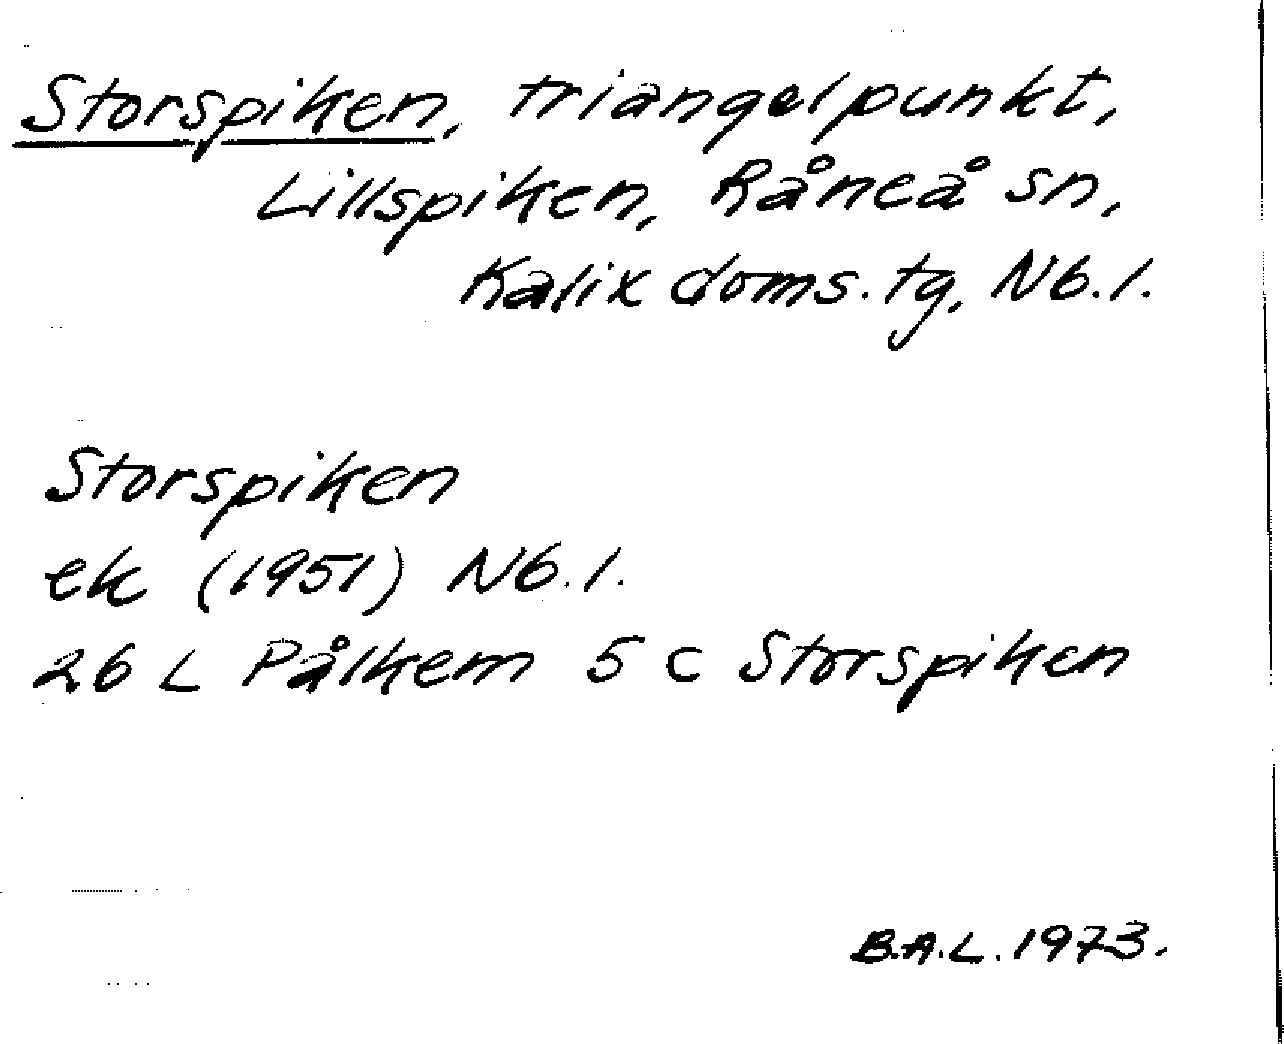 Storspiken, triangelpunkt,
Lillspiken, Råneå sn,
Kalix doms. tg, Nb. l.
Storspiken
ek (1951) Nb. l.
26 L Pålkem 5 c Storspiken
B.A.L. 1973.